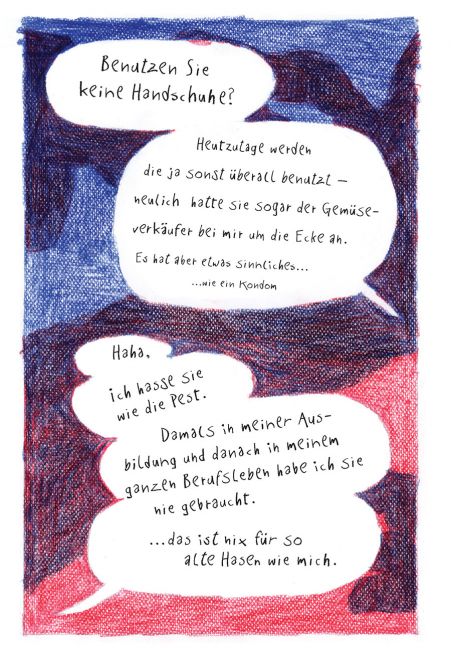 Benutzen Sie
keine Handschuhe?
Heutzutage werden
die ja sonst überall benutzt –
neulich hatte sie sogar der Gemüse-
verkäufer bei mir um die Ecke an.
Es hat aber etwas sinnliches...
...wie ein Kondom
Haha,
ich hasse sie
wie die Pest.
Damals in meiner Aus-
bildung und danach in meinem
ganzen Berufsleben habe ich sie
nie gebraucht.
...das ist nix für so
alte Hasen wie mich.